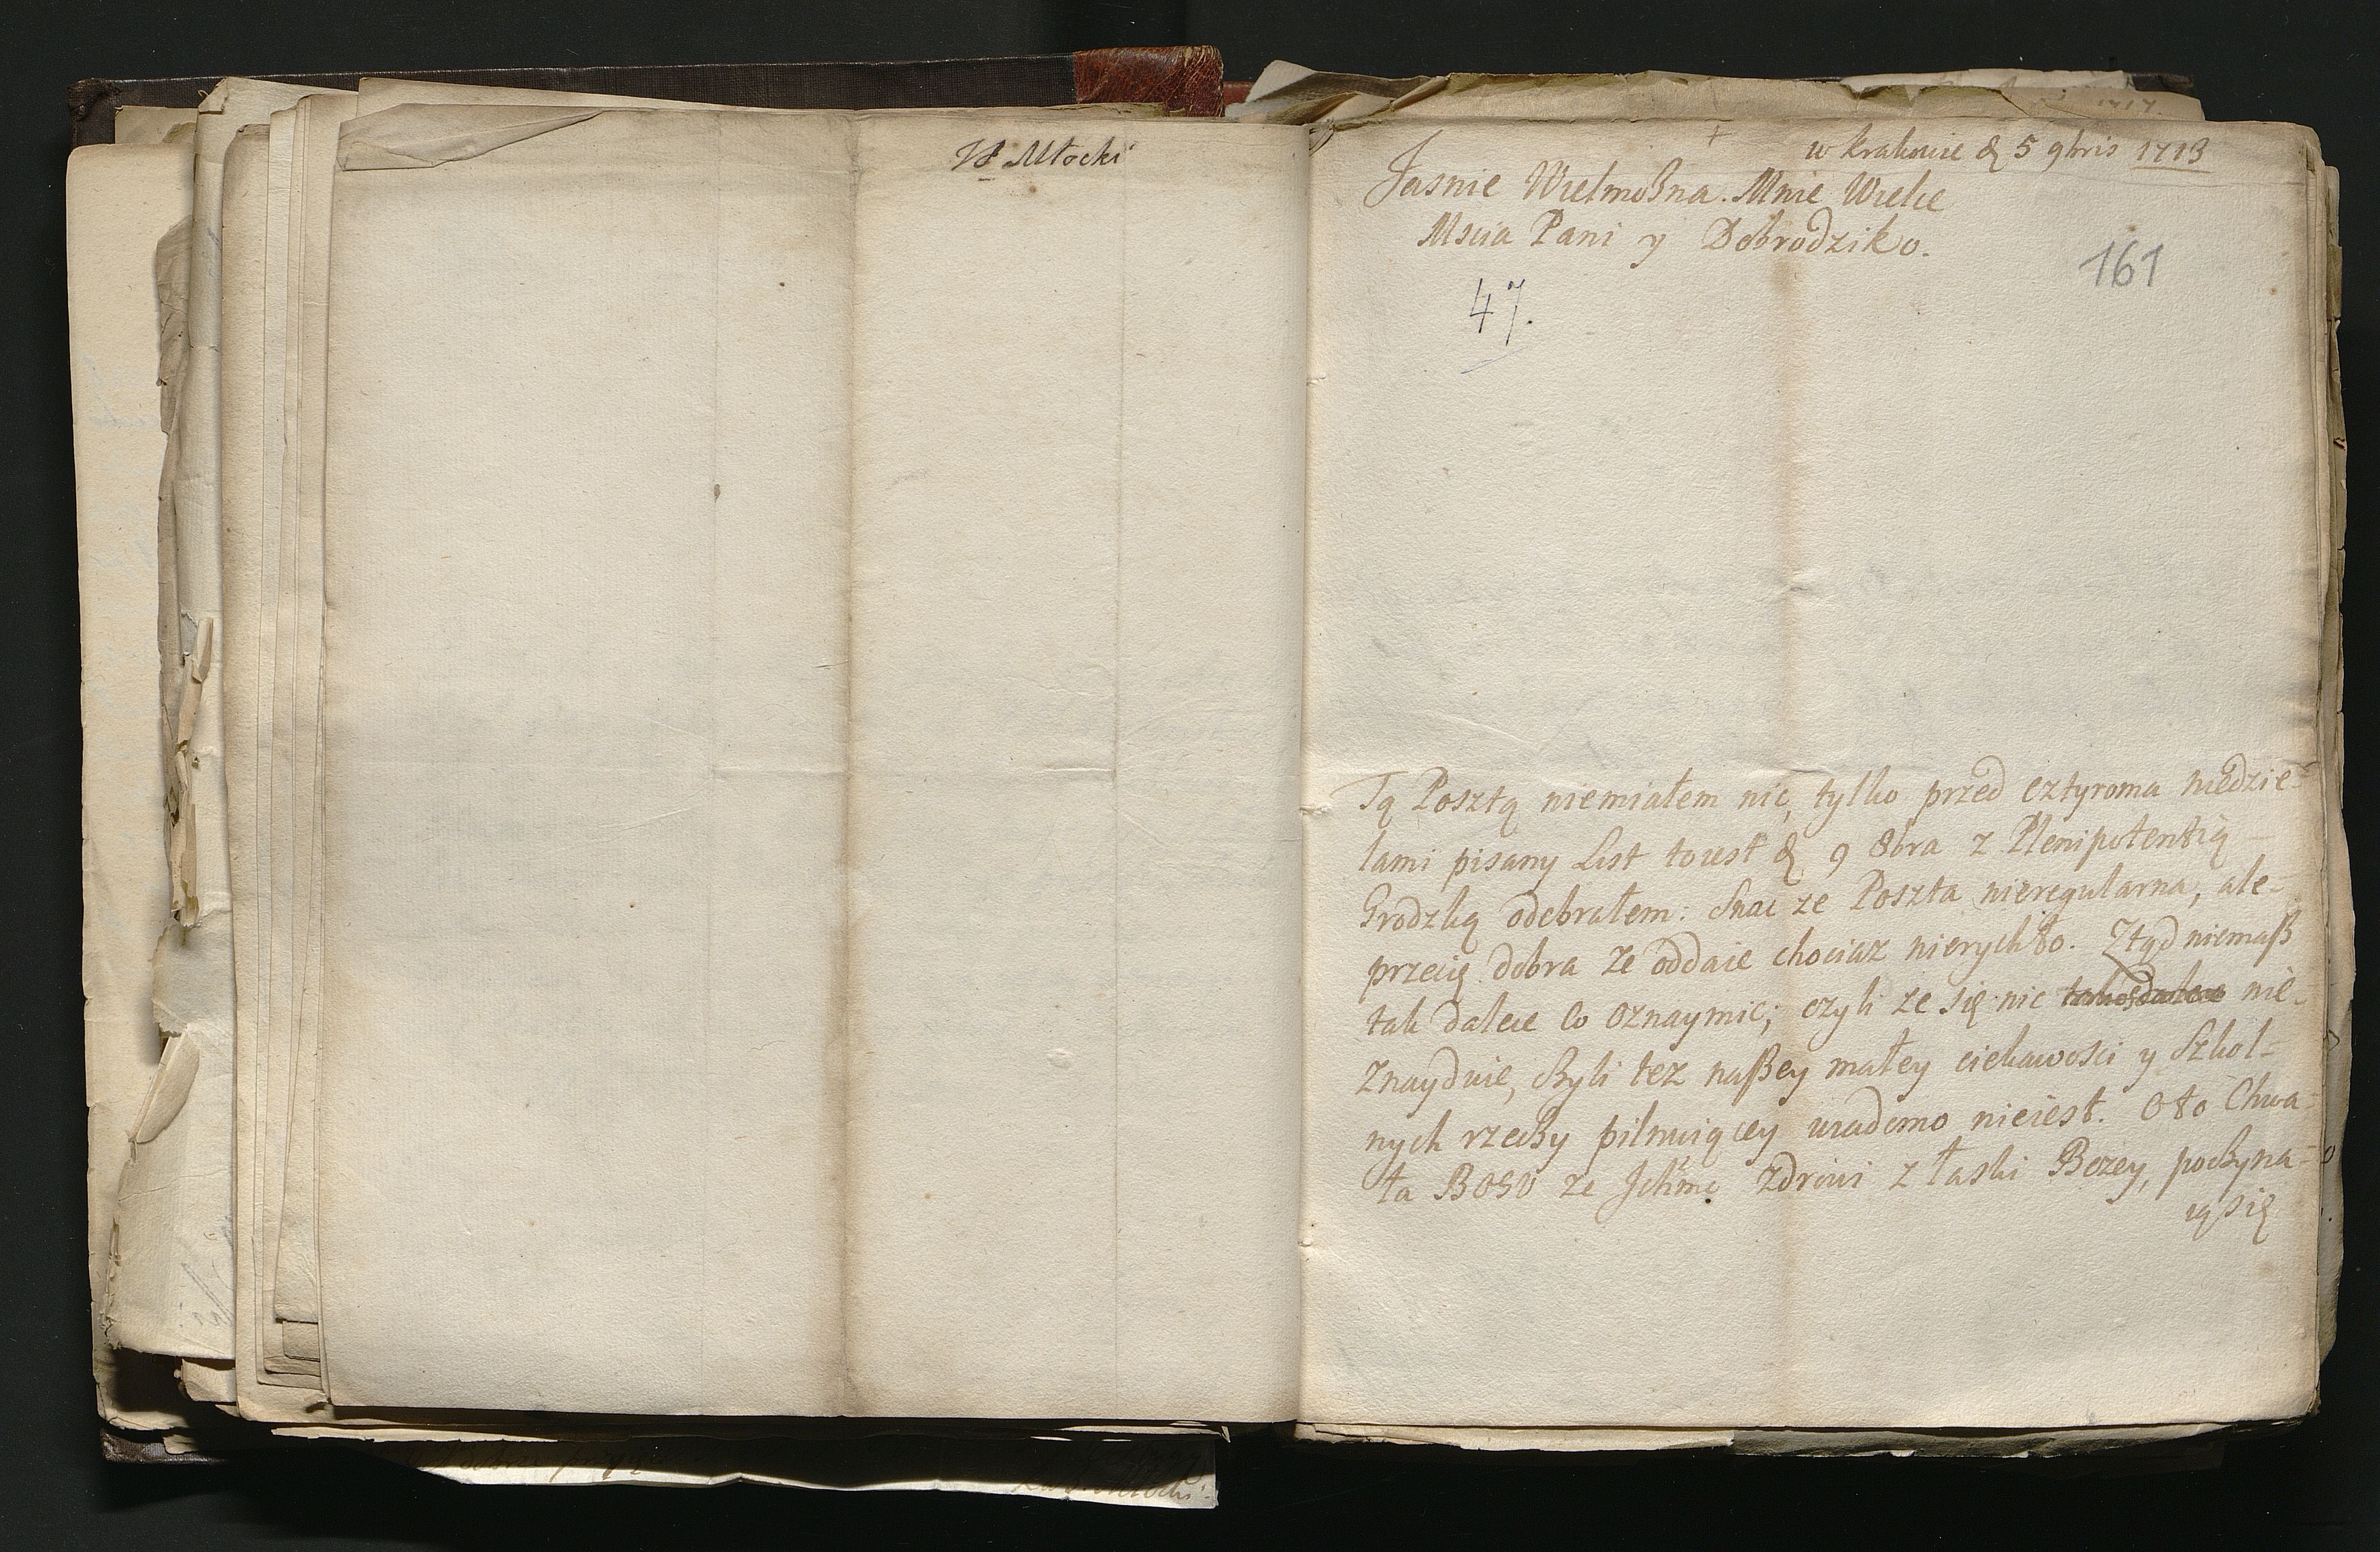 Młocki
+
w krakowie d 5 9bris 1713
Jasnie Wielmoßna Mnie Wielce
Mscia Pani y Dobrodziko.
161
47.
Tą Posztą niemiałem nic, tylko przed cztyroma niedzie-
lami pisany List toiest d 9 8bra z Plenipotentią
Grodzką odebrałem: Snac ze Poszta nieregularna, ale-
przecię dobra ze oddaie chociaz nierychło. Ztąd niemaß
tak dalece co oznaymic; czyli ze się nic nie-
znayduie, czyli tez naßey małey ciekawosci y Szkol-
nych rzeczy pilnuiącey wiadomo nieiest. Oto Chwa-
ła BOGU ze Jchmc zdrowi z łaski Bozey, poczyna-
ią się